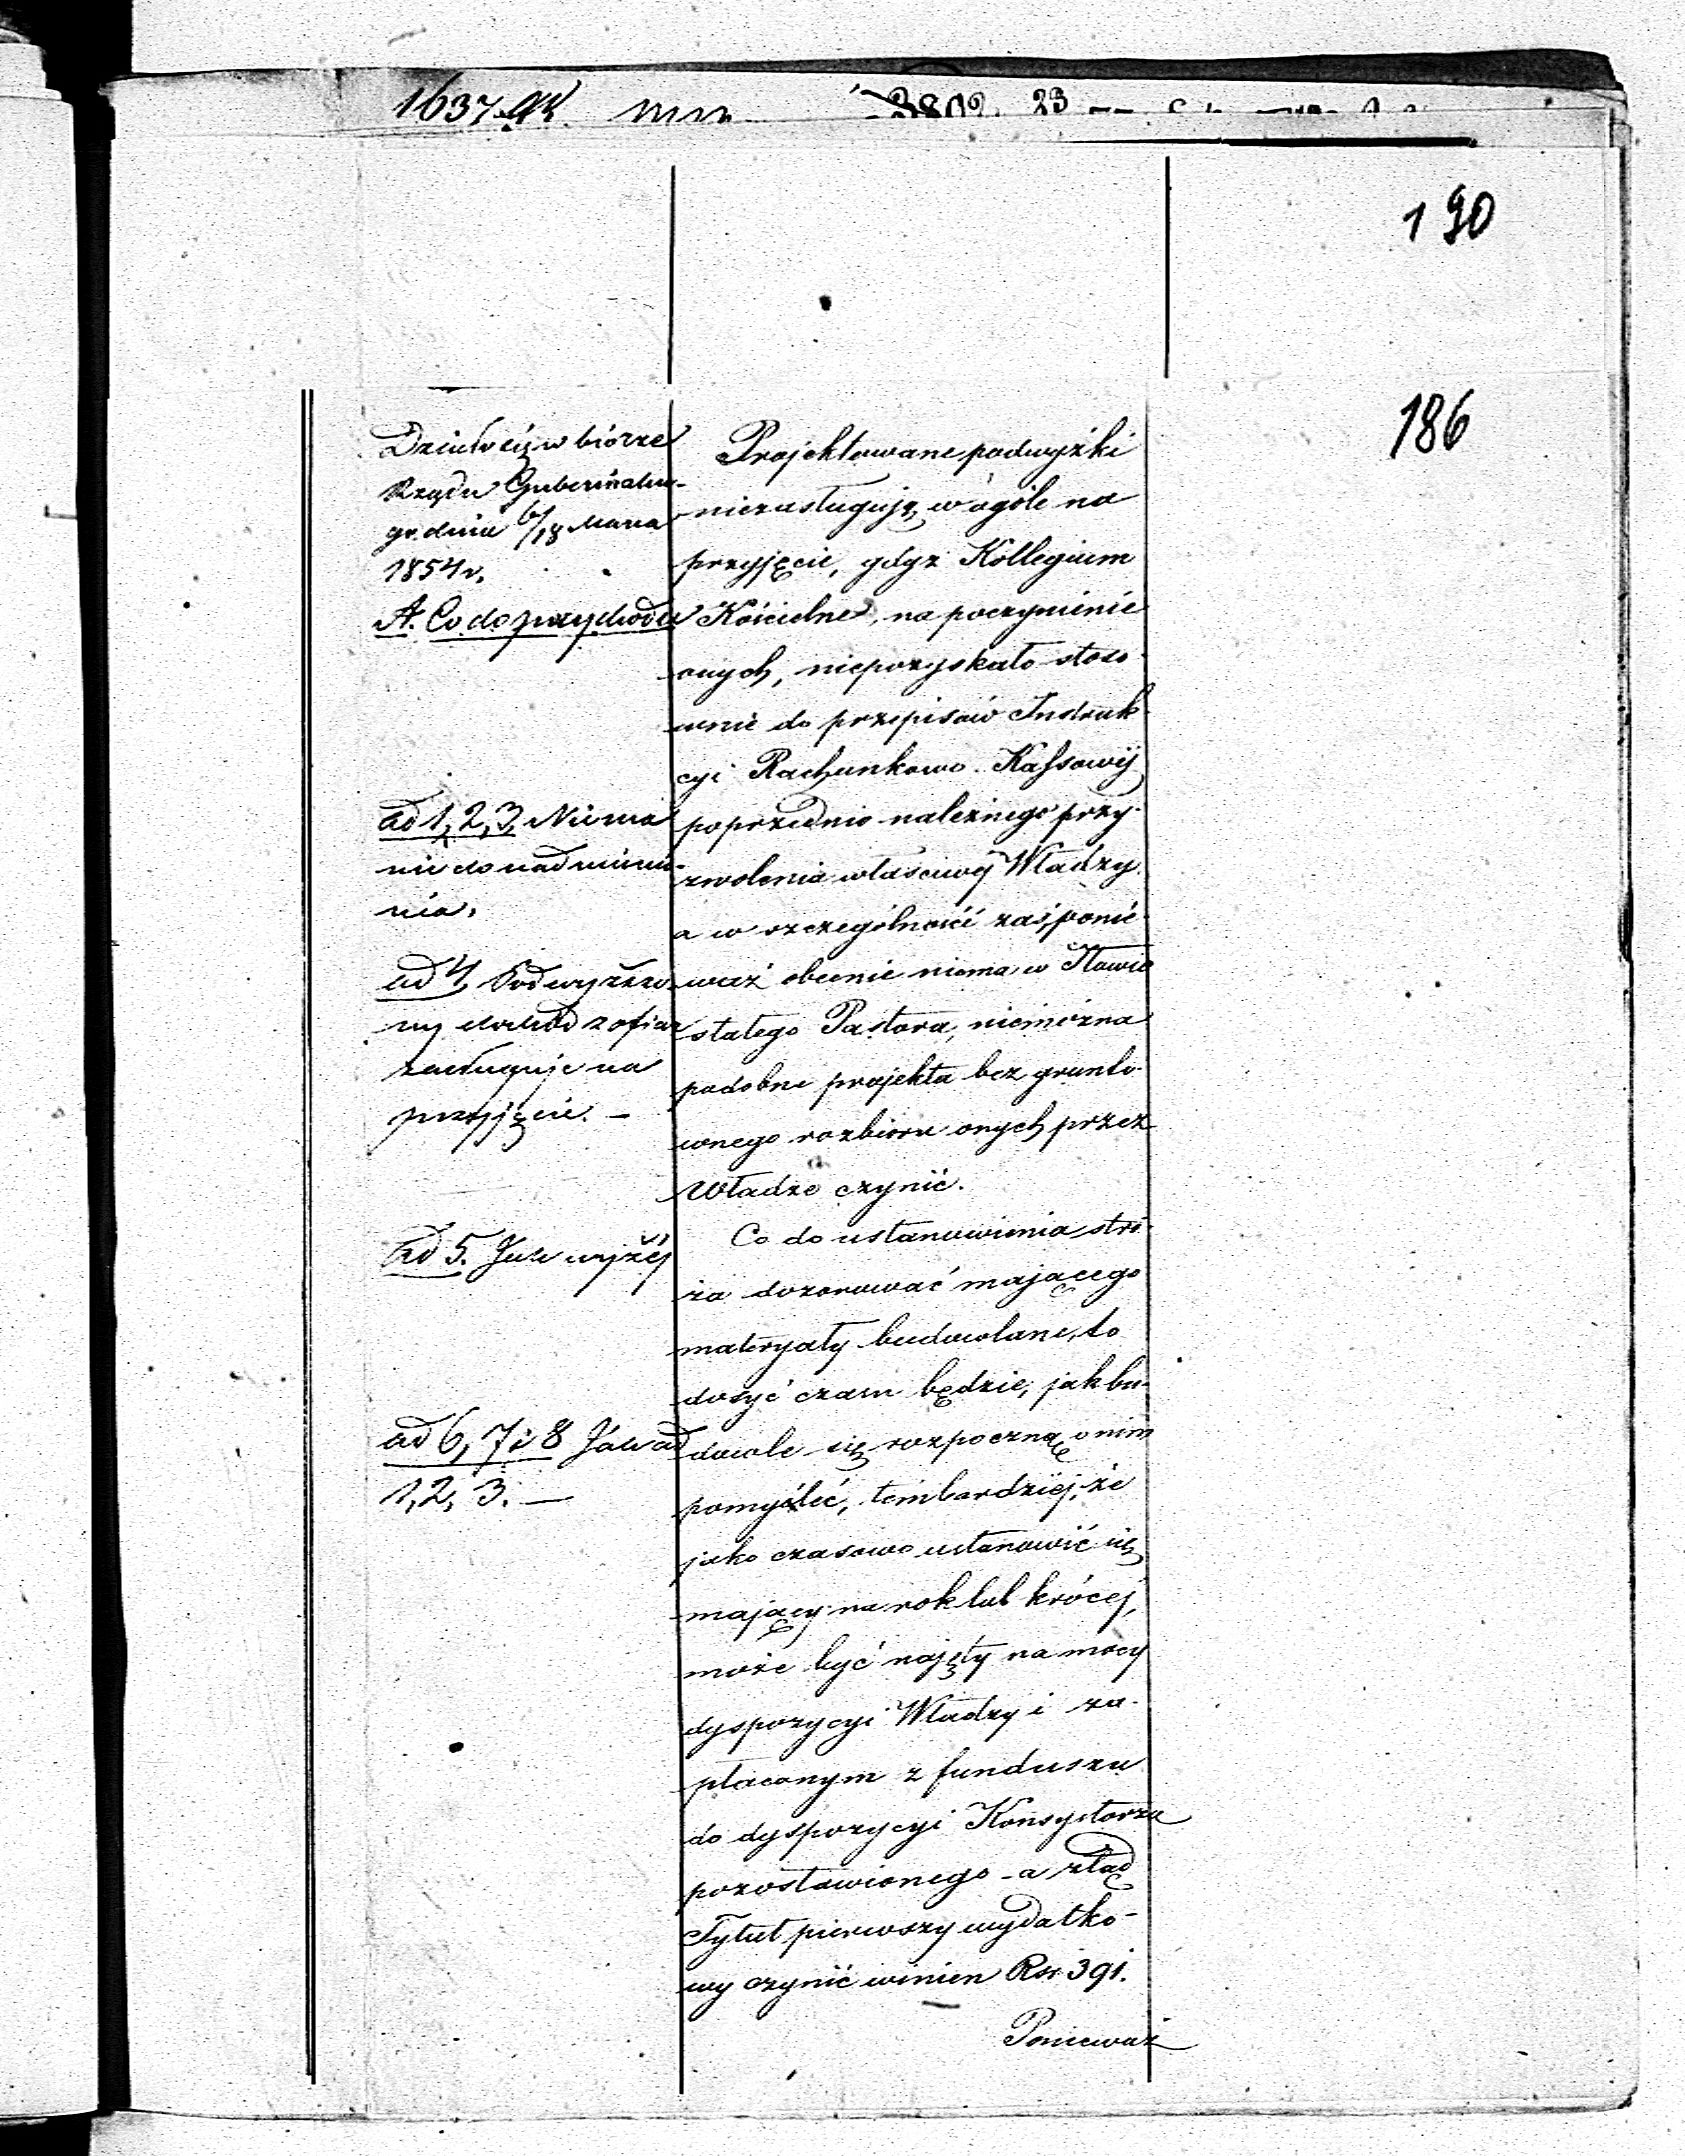 1637
3802 23
190
186
Działo się w biórze
Rządu Gubernialne-
go dnia 6/18 Marca
1854 r.
A. Co do przychodu
ad 1, 2, 3, Niema
nic do nadmienie-
nia.
ad 4 Podwyższo-
ny dochód z ofiar
zasługuje na
przyjęcie. –
ad 5. Jak wyżéj
ad 6, 7 i 8 Jak ad
1, 2, 3. –
Projektowane podwyżki
niezasługują w ogóle na
przyjęcie, gdyż Kollegium
Kościelne, na poczynienie
onych, niepozyskało stoso-
wnie do przepisów Instruk-
cyi Rachunkowo-Kassowéj
poprzednio należnego przy-
zwolenia właściwéj Władzy.
a w szczególności zaś, ponie-
waż obecnie niema w Iławie
stałego Pastora, niemożna
podobne projekta bez grunto-
wnego rozbioru onych przez
Władze czynić.
Co do ustanowienia stró-
ża dozorować mającego
materyały budowlane, to
dosyć czasu będzie, jak bu-
dowle się rozpoczną o nim
pomyśleć, tembardziéj, że
jako czasowo ustanowić się
mający na rok lub krócej,
może być najęty na mocy
dyspozycyi Władzy i za-
płaconym z funduszu
do dyspozycyi Konsystorza
pozostawionego – a ztąd
Tytuł pierwszy wydatko-
wy czynić winien Rsr 391.
Ponieważ